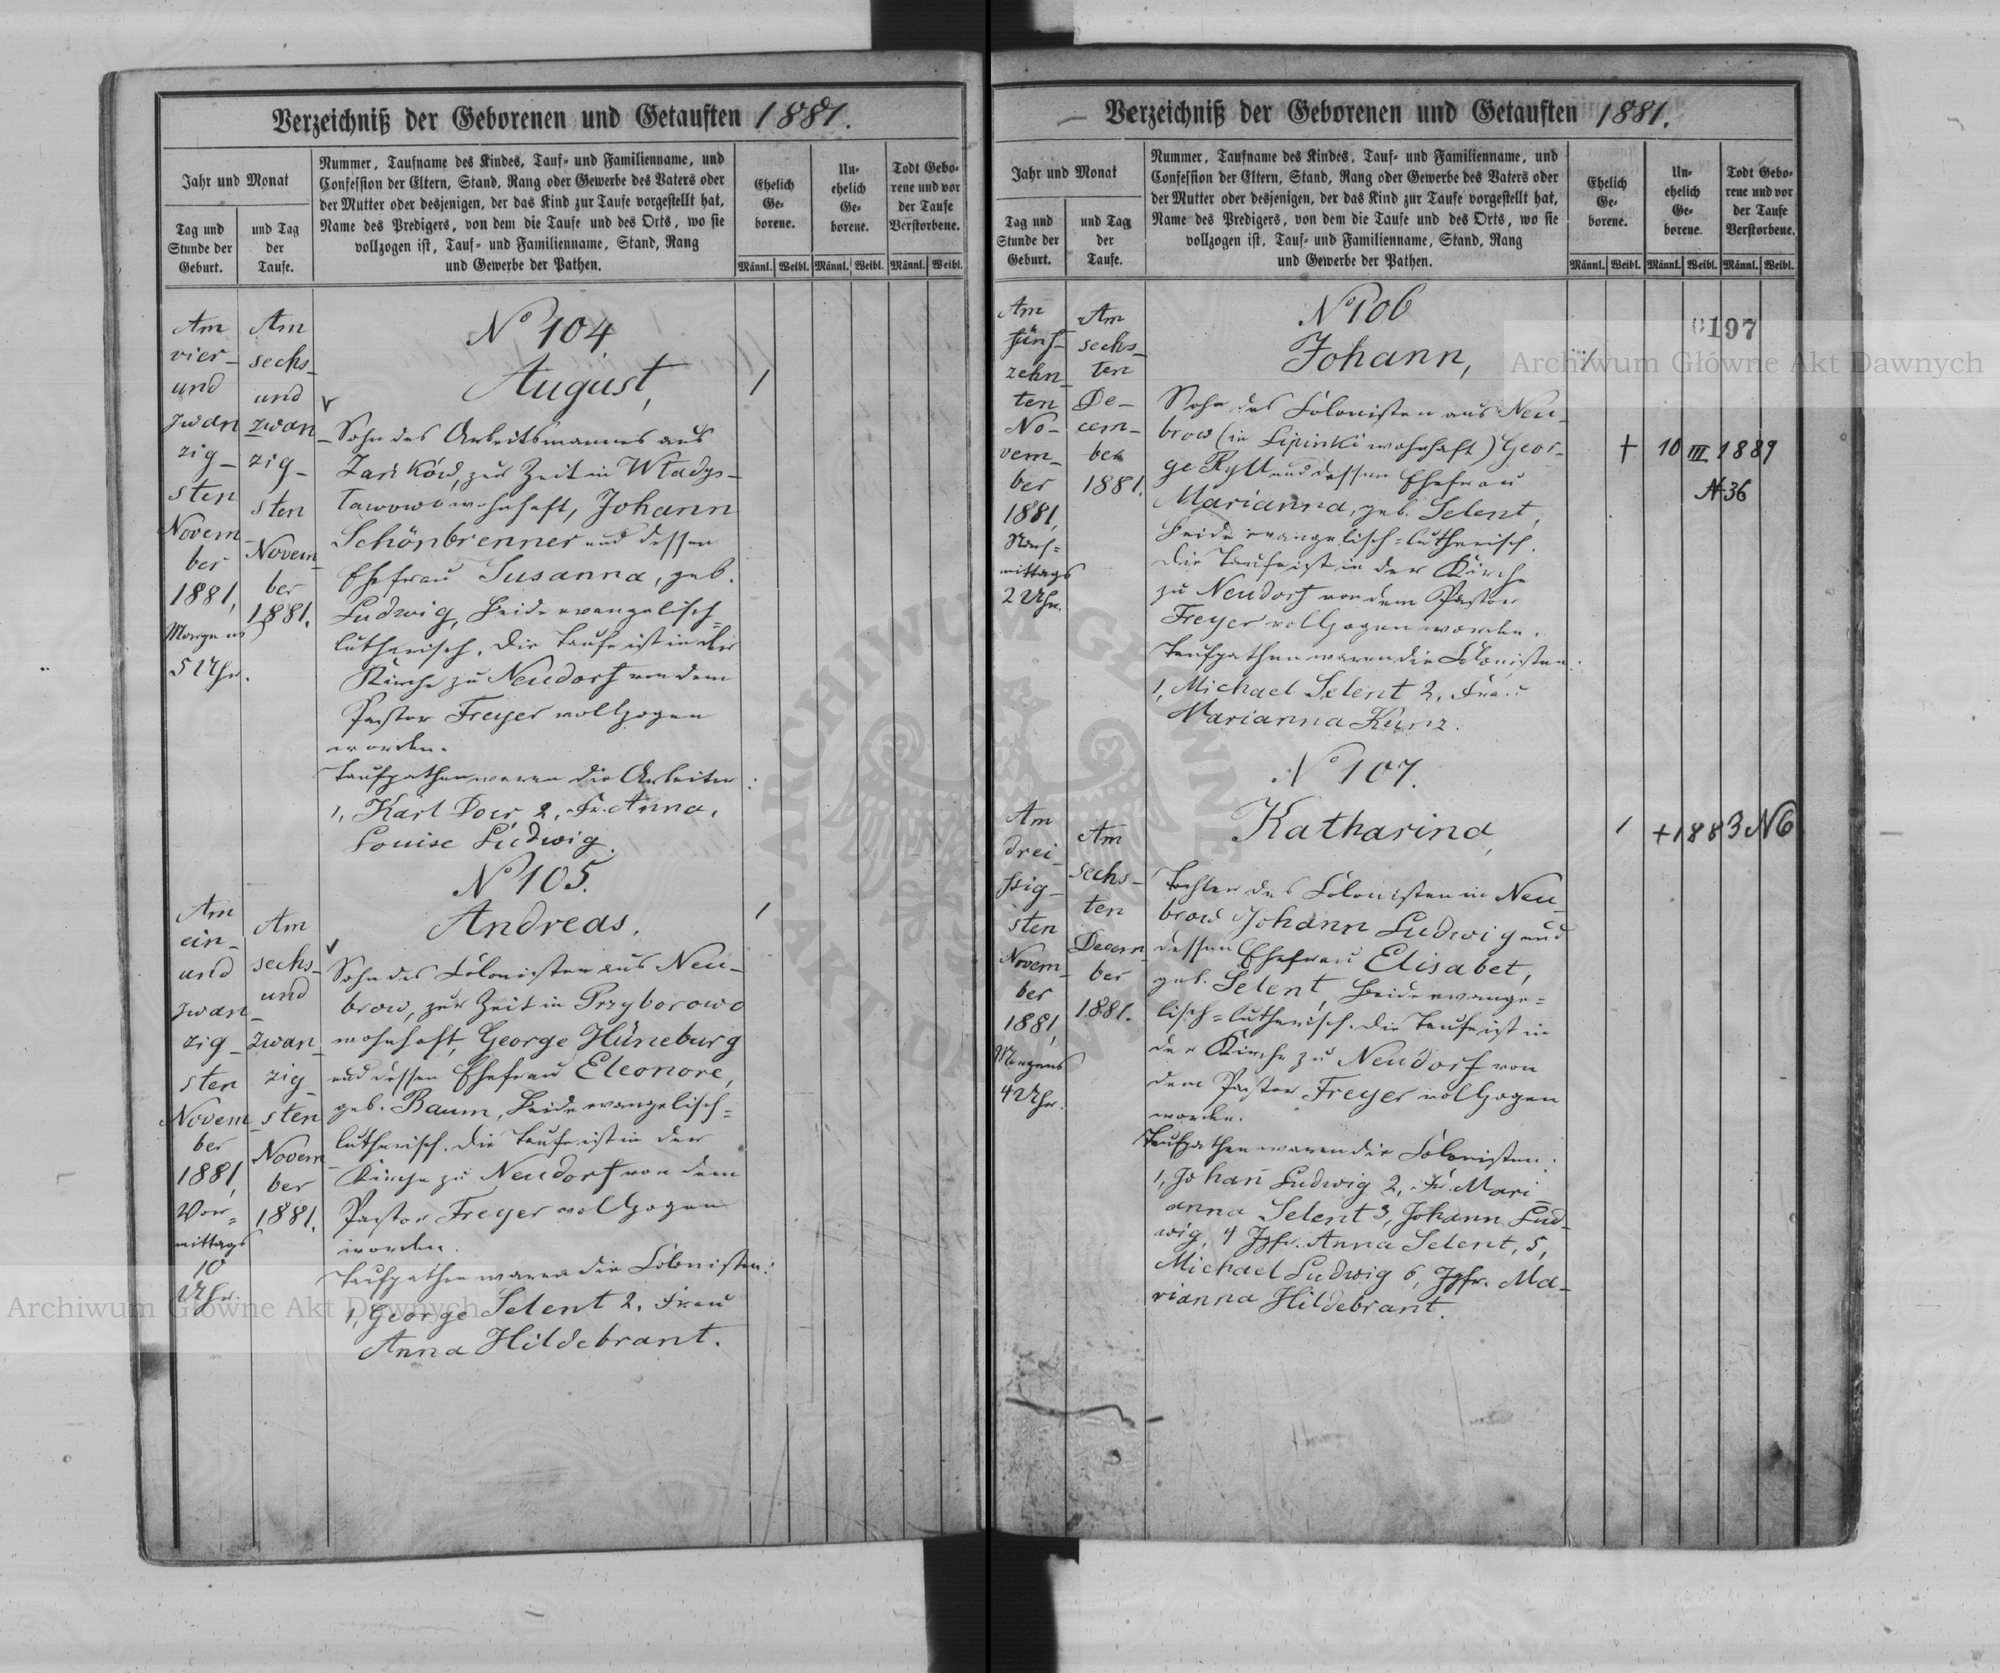 Verzeichniß der Geborenen und Getauften 1881.
Jahr und Monat
Tag und
Stunde der
Geburt.
und Tag
der
Taufe.
Nummer, Taufname des Kindes, Tauf- und Familienname, und
Confession der Eltern, Stand, Rang oder Gewerbe des Vaters oder
der Mutter oder desjenigen, der das Kind zur Taufe vorgestellt hat,
Name des Predigers, von dem die Taufe und des Orts, wo sie
vollzogen ist, Tauf- und Familienname, Stand, Rang
und Gewerbe der Pathen.
Ehelich
Ge-
borene.
Un-
ehelich
Ge-
borene.
Todt Gebo-
rene und vor
der Taufe
Verstorbene.
Männl. Weibl. Männl. Weibl. Männl. Weibl.
Am
vier-
und
zwan
zig-
sten
Novem
ber
1881,
Morgens
5 Uhr.
Am
sechs-
und
zwan-
zig-
sten
Novem-
ber
1881.
No 104
August,
1
Sohn des Arbeitsmannes aus
zur Zeit in Władys-
ławowo wohnhaft, Johann
Schönbrenner und dessen
Ehefrau Susanna, geb.
Ludwig, Beide evangelisch-
lutherisch. Die Taufe ist in der
Kirche zu Neudorf von dem
Pastor Freyer vollzogen
worden.
Taufpathen waren die Arbeiter:
1, Karl 2, Fr. Anna,
Louise Ludwig.
Am
ein-
und
zwan-
zig-
sten
Novem
ber
1881,
Vor-
mittags
10
Uhr.
Am
sechs-
und
zwan-
zig-
sten
Novem-
ber
1881.
No 105.
Andreas.
1
Sohn des Colonisten aus Neu-
brow, zur Zeit in Przyborowo
wohnhaft, George Hüneburg
und dessen Ehefrau Eleonore,
geb. Baum, Beide evangelisch-
lutherisch. Die Taufe ist in der
Kirche zu Neudorf von dem
Pastor Freyer vollzogen
worden.
Taufpathen waren die Colonisten:
1, George Selent 2, Frau
Anna Hildebrant.
Verzeichniß der Geborenen und Getauften 1881.
Jahr und Monat
Tag und
Stunde der
Geburt.
und Tag
der
Taufe.
Nummer, Taufname des Kindes, Tauf- und Familienname, und
Confession der Eltern, Stand, Rang oder Gewerbe des Vaters oder
der Mutter oder desjenigen, der das Kind zur Taufe vorgestellt hat,
Name des Predigers, von dem die Taufe und des Orts, wo sie
vollzogen ist, Tauf- und Familienname, Stand, Rang
und Gewerbe der Pathen.
Ehelich
Ge-
borene.
Un-
ehelich
Ge-
borene.
Todt Gebo-
rene und vor
der Taufe
Verstorbene.
Männl. Weibl. Männl. Weibl. Männl. Weibl.
197
Am
fünf-
zehn-
ten
No-
vem-
ber
1881,
Nach-
mittags
2 Uhr.
Am
sechs-
ten
De-
cem-
ber
1881.
No 106
Johann,
1
Sohn des Colonisten aus Neu-
brow (in Lipinki wohnhaft) Geor-
ge Ryll und dessen Ehefrau
Marianna, geb. Selent,
Beide evangelisch-lutherisch.
Die Taufe ist in der Kirche
zu Neudorf von dem Pastor
Freyer vollzogen worden.
Taufpathen waren die Colonisten:
1, Michael Selent 2, Frau
Marianna Kunz.
† 10 III 1889
N 36
Am
drei-
ssig-
sten
Novem-
ber
1881,
Morgens
4 Uhr.
Am
sechs-
ten
Decem
ber
1881.
No 107.
Katharina,
1
+ 1883 N 6
Tochter des Colonisten in Neu-
brow Johann Ludwig und
dessen Ehefrau Elisabet,
geb. Selent, Beide evange-
lisch-lutherisch. Die Taufe ist in
der Kirche zu Neudorf von
dem Pastor Freyer vollzogen
worden.
Taufpathen waren die Colonisten:
1, Johan̄ Ludwig 2, Fr. Mari-
anna Selent 3, Johann Lud-
wig, 4 Jgfr. Anna Selent, 5,
Michael Ludwig 6, Jgfr. Ma-
rianna Hildebrant.
Archiwum Główne Akt Dawnych
Archiwum Główne Akt Dawnych
ARCHIWUM GŁÓWNE AKT DAWNYCH